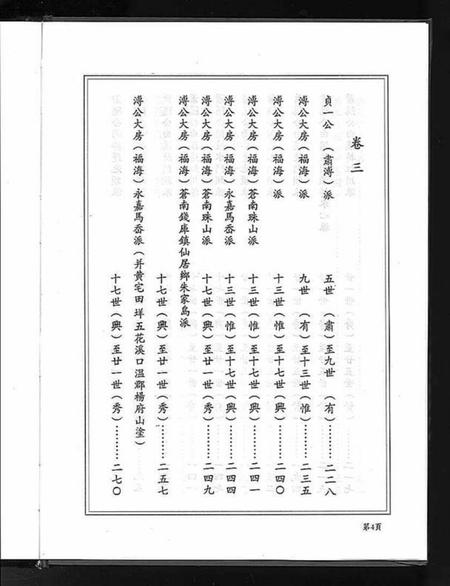 卷三
貞一公(肅溥)派 五世(肅)至九世(有)………二二八
溥公大房(福海)派 九世(有)至十三世(惟)………二三五
溥公大房(福海)派 十三世(惟)至十七世(興)………二四〇
溥公大房(福海)蒼南珠山派 十三世(惟)至十七世(興)………二四一
溥公大房(福海)永嘉馬岙派 十三世(惟)至十七世(興)………二四四
溥公大房(福海)蒼南珠山派 十七世(興)至廿一世(秀)………二四九
溥公大房(福海)蒼南錢庫鎮仙居鄉朱家島派
十七世(興)至廿一世(秀)………二五七
溥公大房(福海)永嘉馬岙派(并黄宅田垟五花溪口溫郡楊府山塗)
十七世(興)至廿一世(秀)………二七〇
第4頁